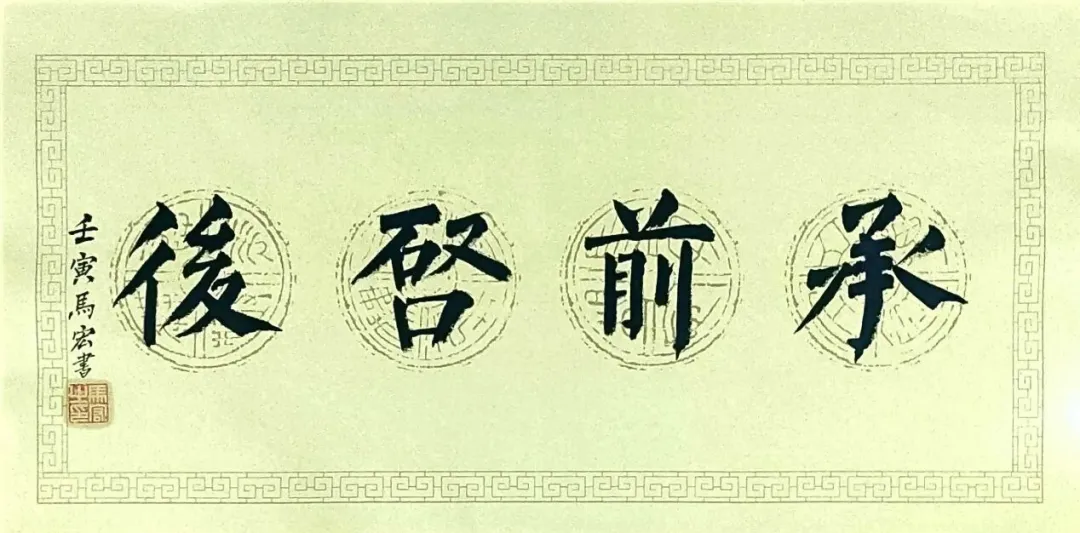 承前啓後
壬寅馬宏書